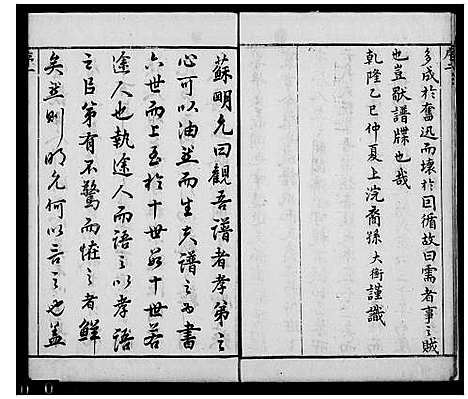 多成於奮迅而壞於因循故曰需者事之賊
也豈獨譜牒也哉
乾隆乙巳仲夏上浣裔孫大衡謹識
蘇明允曰觀吾譜者孝弟之
心可以油然而生夫譜之為書
六世而上至於十世若十世若
途人也執途人而語之以孝語
之以弟有不驚而怪之者鮮
矣然則明允何以言之也蓋